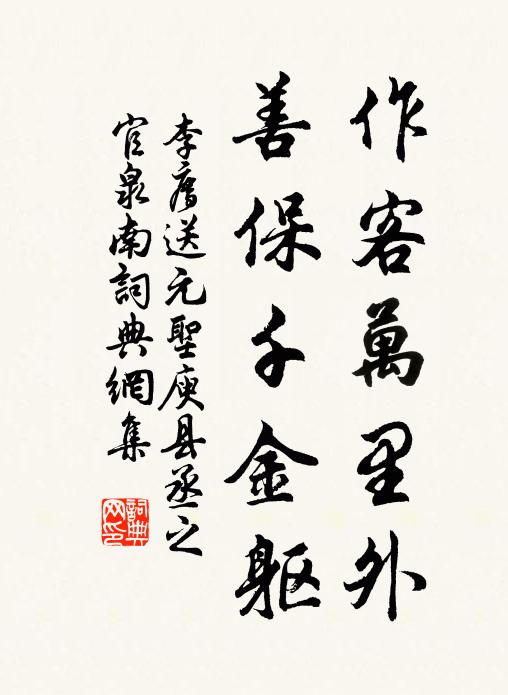 作客萬里外
善保千金軀
李廌送元聖庾县丞之
官泉南詞典網集
詞典
网印